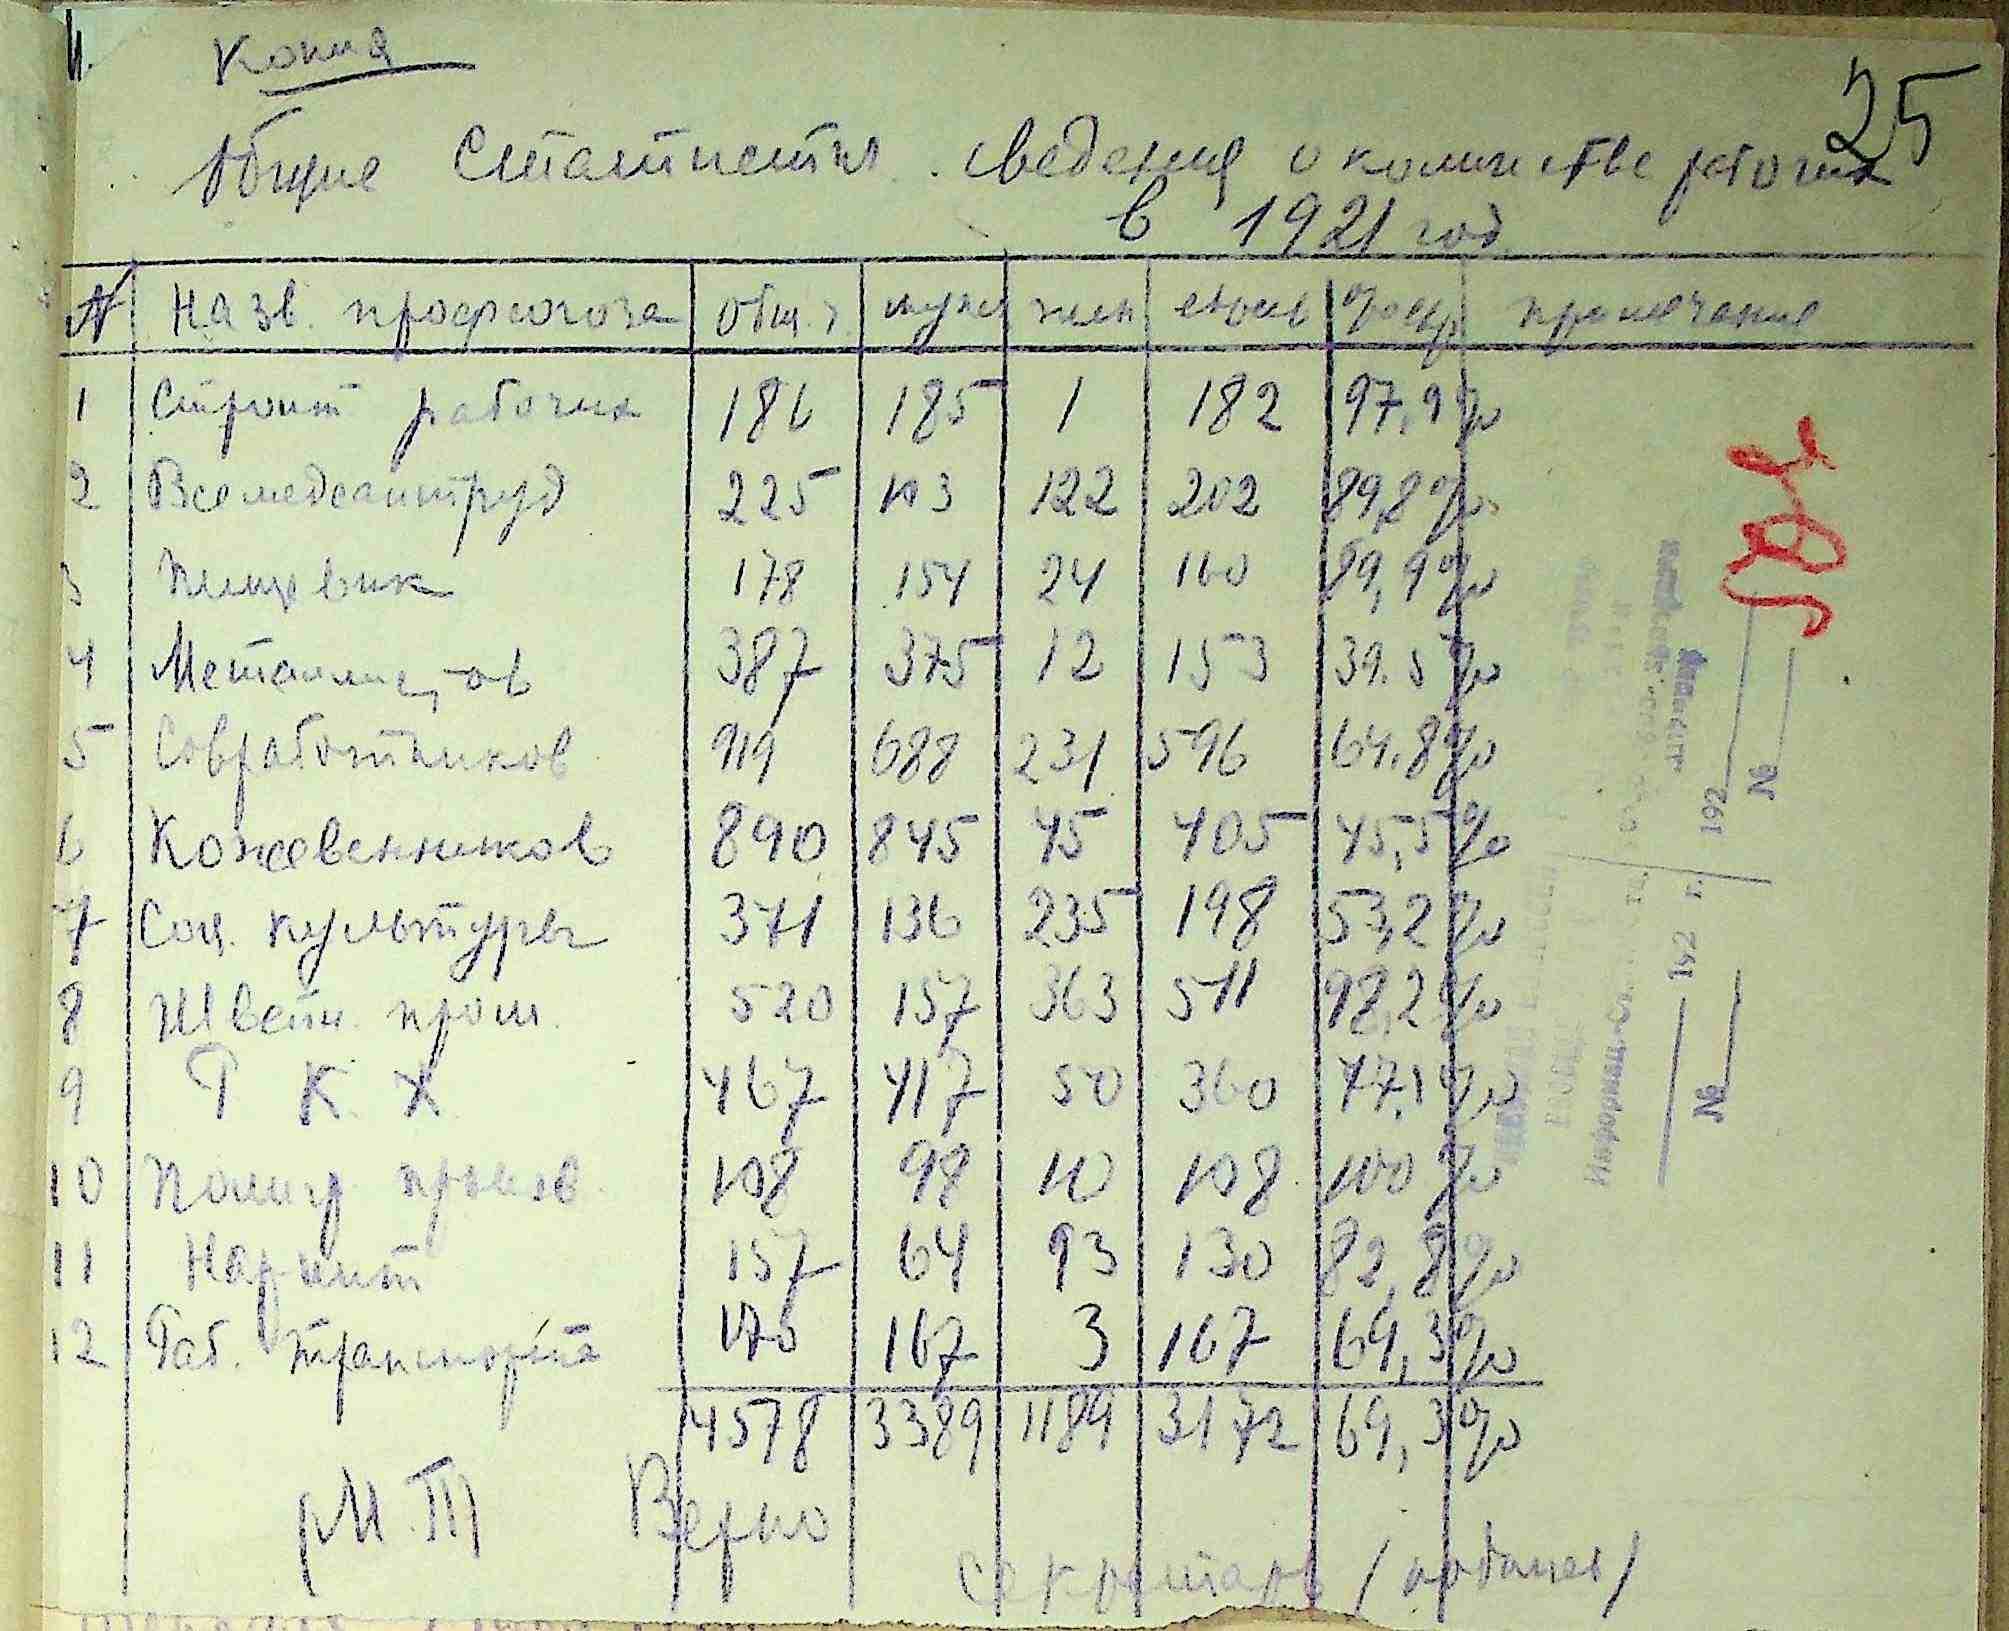 Копия
25
Общие Статистич. сведения о количестве рабочих
в 1921 год
N Назв. профсоюза общ. ч. мужч жен евреев % евр примечание
1 Строит рабочих 186 185 1 182 97,9%
2 Всемедсантруд 225 103 122 202 89,8%
3 Пищевик 178 154 24 160 89,9%
4 Металлистов 387 375 12 153 39.5%
5 Совработников 919 688 231 596 64.8%
6 Кожевенников 890 845 45 405 45,5%
7 Соц. культуры 371 136 235 198 53,2%
8 Швейн. пром. 520 157 363 511 98,2%
9 Р К. Х 467 417 50 360 77,1%
10 Полигр. произв. 108 98 10 108 100%
11 Нарпит 157 64 93 130 82,8%
12 Раб. транспорта 170 167 3 167 69,3%
4578 3389 1189 3172 69,3%
М.П Верно
Секретарь
192
№
192 г.
№